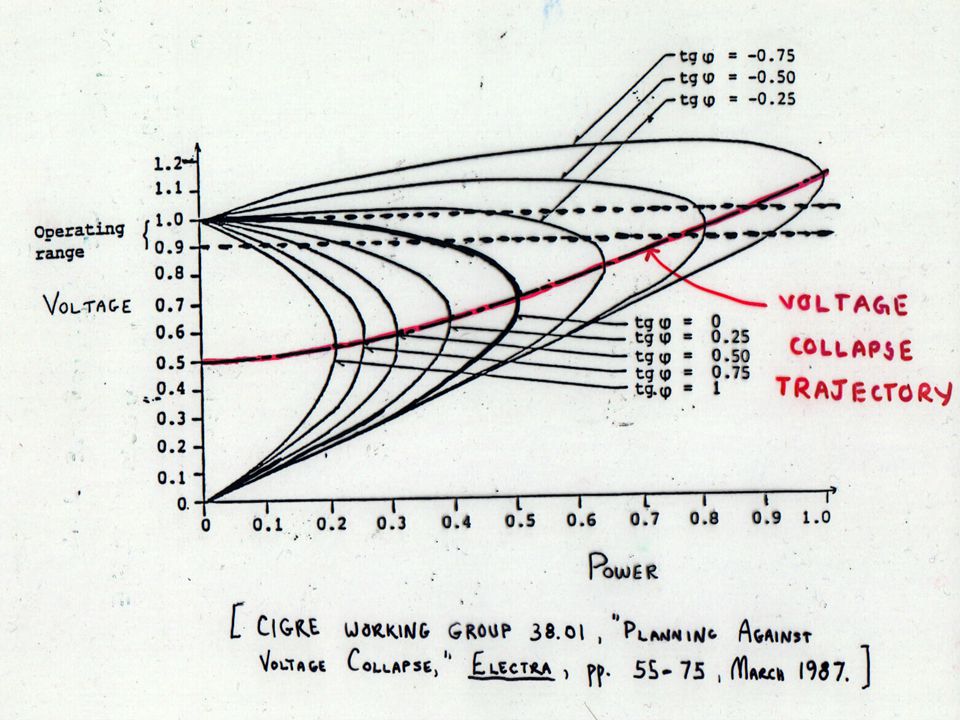 tg φ = -0.75
tg φ = -0.50
tg φ = -0.25
1.2
1.1
1.0
0.9
0.8
0.7
0.6
0.5
0.4
0.3
0.2
0.1
0.
Operating
range
{
VOLTAGE
tg φ = 0
tg φ = 0.25
tg φ = 0.50
tg φ = 0.75
tg φ = 1
VOLTAGE
COLLAPSE
TRAJECTORY
0 0.1 0.2 0.3 0.4 0.5 0.6 0.7 0.8 0.9 1.0
POWER
[ CIGRE WORKING GROUP 38.01, "PLANNING AGAINST
VOLTAGE COLLAPSE," ELECTRA, pp. 55-75, MARCH 1987. ]